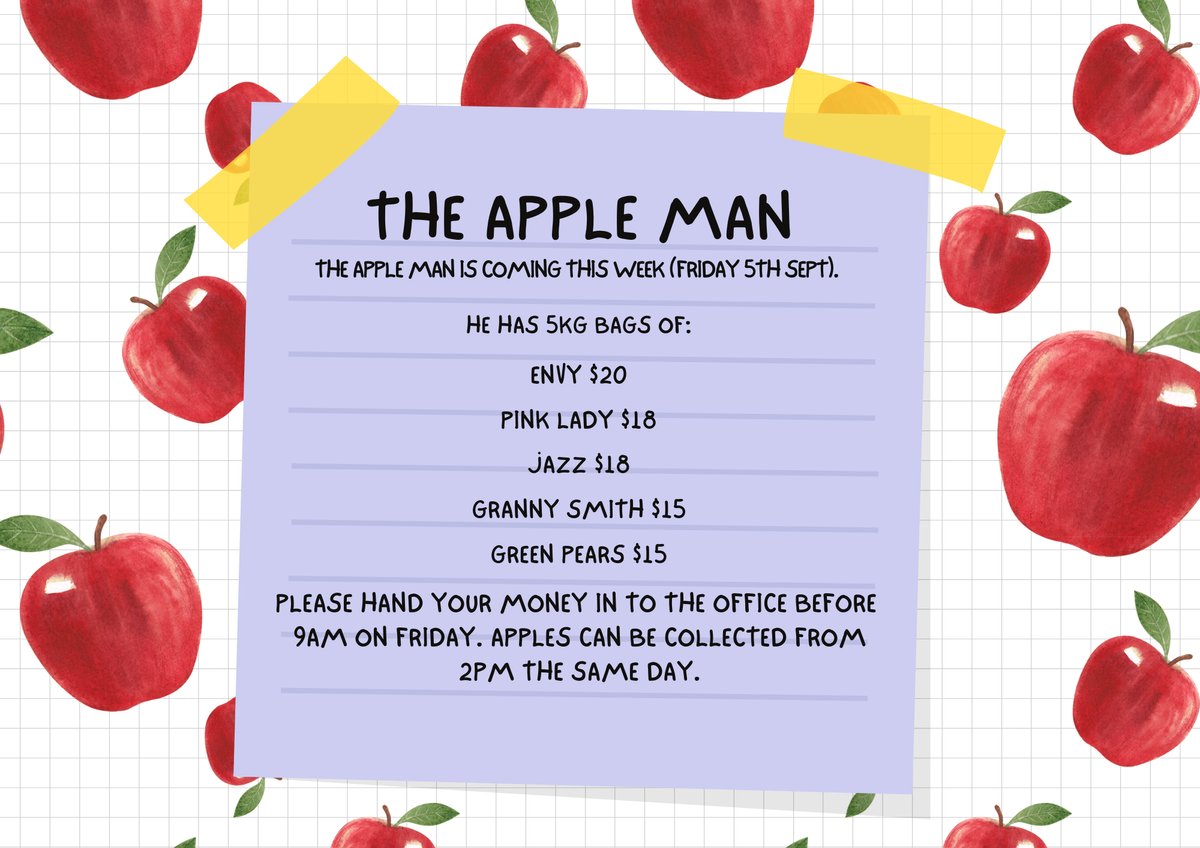 THE APPLE MAN
THE APPLE MAN IS COMING THIS WEEK (FRIDAY 5TH SEPT).
HE HAS 5KG BAGS OF:
ENVY $20
PINK LADY $18
JAZZ $18
GRANNY SMITH $15
GREEN PEARS $15
PLEASE HAND YOUR MONEY IN TO THE OFFICE BEFORE
9AM ON FRIDAY. APPLES CAN BE COLLECTED FROM
2PM THE SAME DAY.